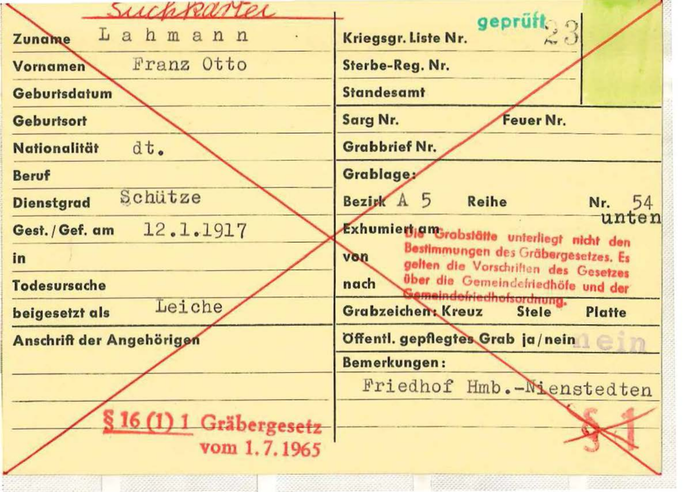 Suchkartei
Zuname Lahmann
Vornamen Franz Otto
Geburtsdatum
Geburtsort
Nationalität dt.
Beruf
Dienstgrad Schütze
Gest./Gef. am 12.1.1917
in
Todesursache
beigesetzt als Leiche
Anschrift der Angehörigen
§ 16 (1) 1 Gräbergesetz
vom 1.7.1965
geprüft
Kriegsgr. Liste Nr. 23
Sterbe-Reg. Nr.
Standesamt
Sarg Nr. Feuer Nr.
Grabbrief Nr.
Grablage:
Bezirk A 5 Reihe Nr. 54
unten
Exhumiert am
von
nach
Die Grabstätte unterliegt nicht den
Bestimmungen des Gräbergesetzes. Es
gelten die Vorschriften des Gesetzes
über die Gemeindefriedhöfe und der
Gemeindefriedhofsordnung.
Grabzeichen: Kreuz Stele Platte
Öffentl. gepflegtes Grab ja/nein nein
Bemerkungen:
Friedhof Hmb.-Nienstedten
§ 1